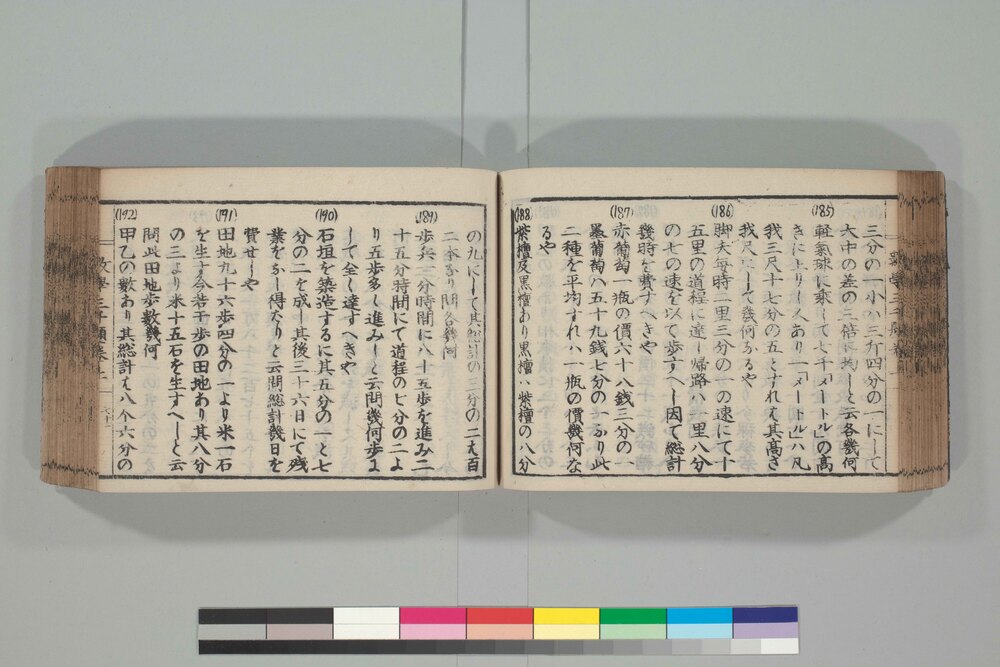 三分の一小ハ三斤四分の一にして
大中の差の三倍不均しと云各幾何
(185)
軽気球に乗して七千「メートル」の高
きに上りし人あり一「メートル」ハ凡
我三尺十七分の五とすれは其高さ
我尺にして幾何なるや
(186)
脚夫毎時一里三分の一の速にて十
五里の道程に達し帰路ハ一里八分
の七の速を以て歩すへし因て総計
幾時を費すへきや
(187)
赤葡萄一瓶の價六十八銭三分の一
墨葡萄ハ五十九銭七分の一なり此
二種を平均すれハ一瓶の價幾何な
るや
(188)
紫檀及黒檀あり黒檀ハ紫檀の八分
の九にして其総計の三分の二は百
二本なり問各幾何
(189)
歩兵三分時間に八十五歩を進み二
十五分時間にて道程の七分の二よ
り五歩多し進みしと云問幾何歩に
して全し達すへきや
(190)
石垣を築造するに其五分の一と七
分の二を成し其後三十六日にて残
業をなし得たりと云問総計幾日を
費せしや
(191)
田地九十六歩四分の一より米一石
を生す今若干歩の田地あり其八分
の三より米十五石を生すへしと云
問此田地歩数幾何
(192)
甲乙の数あり其総計は八个六分の
数學三千題巻